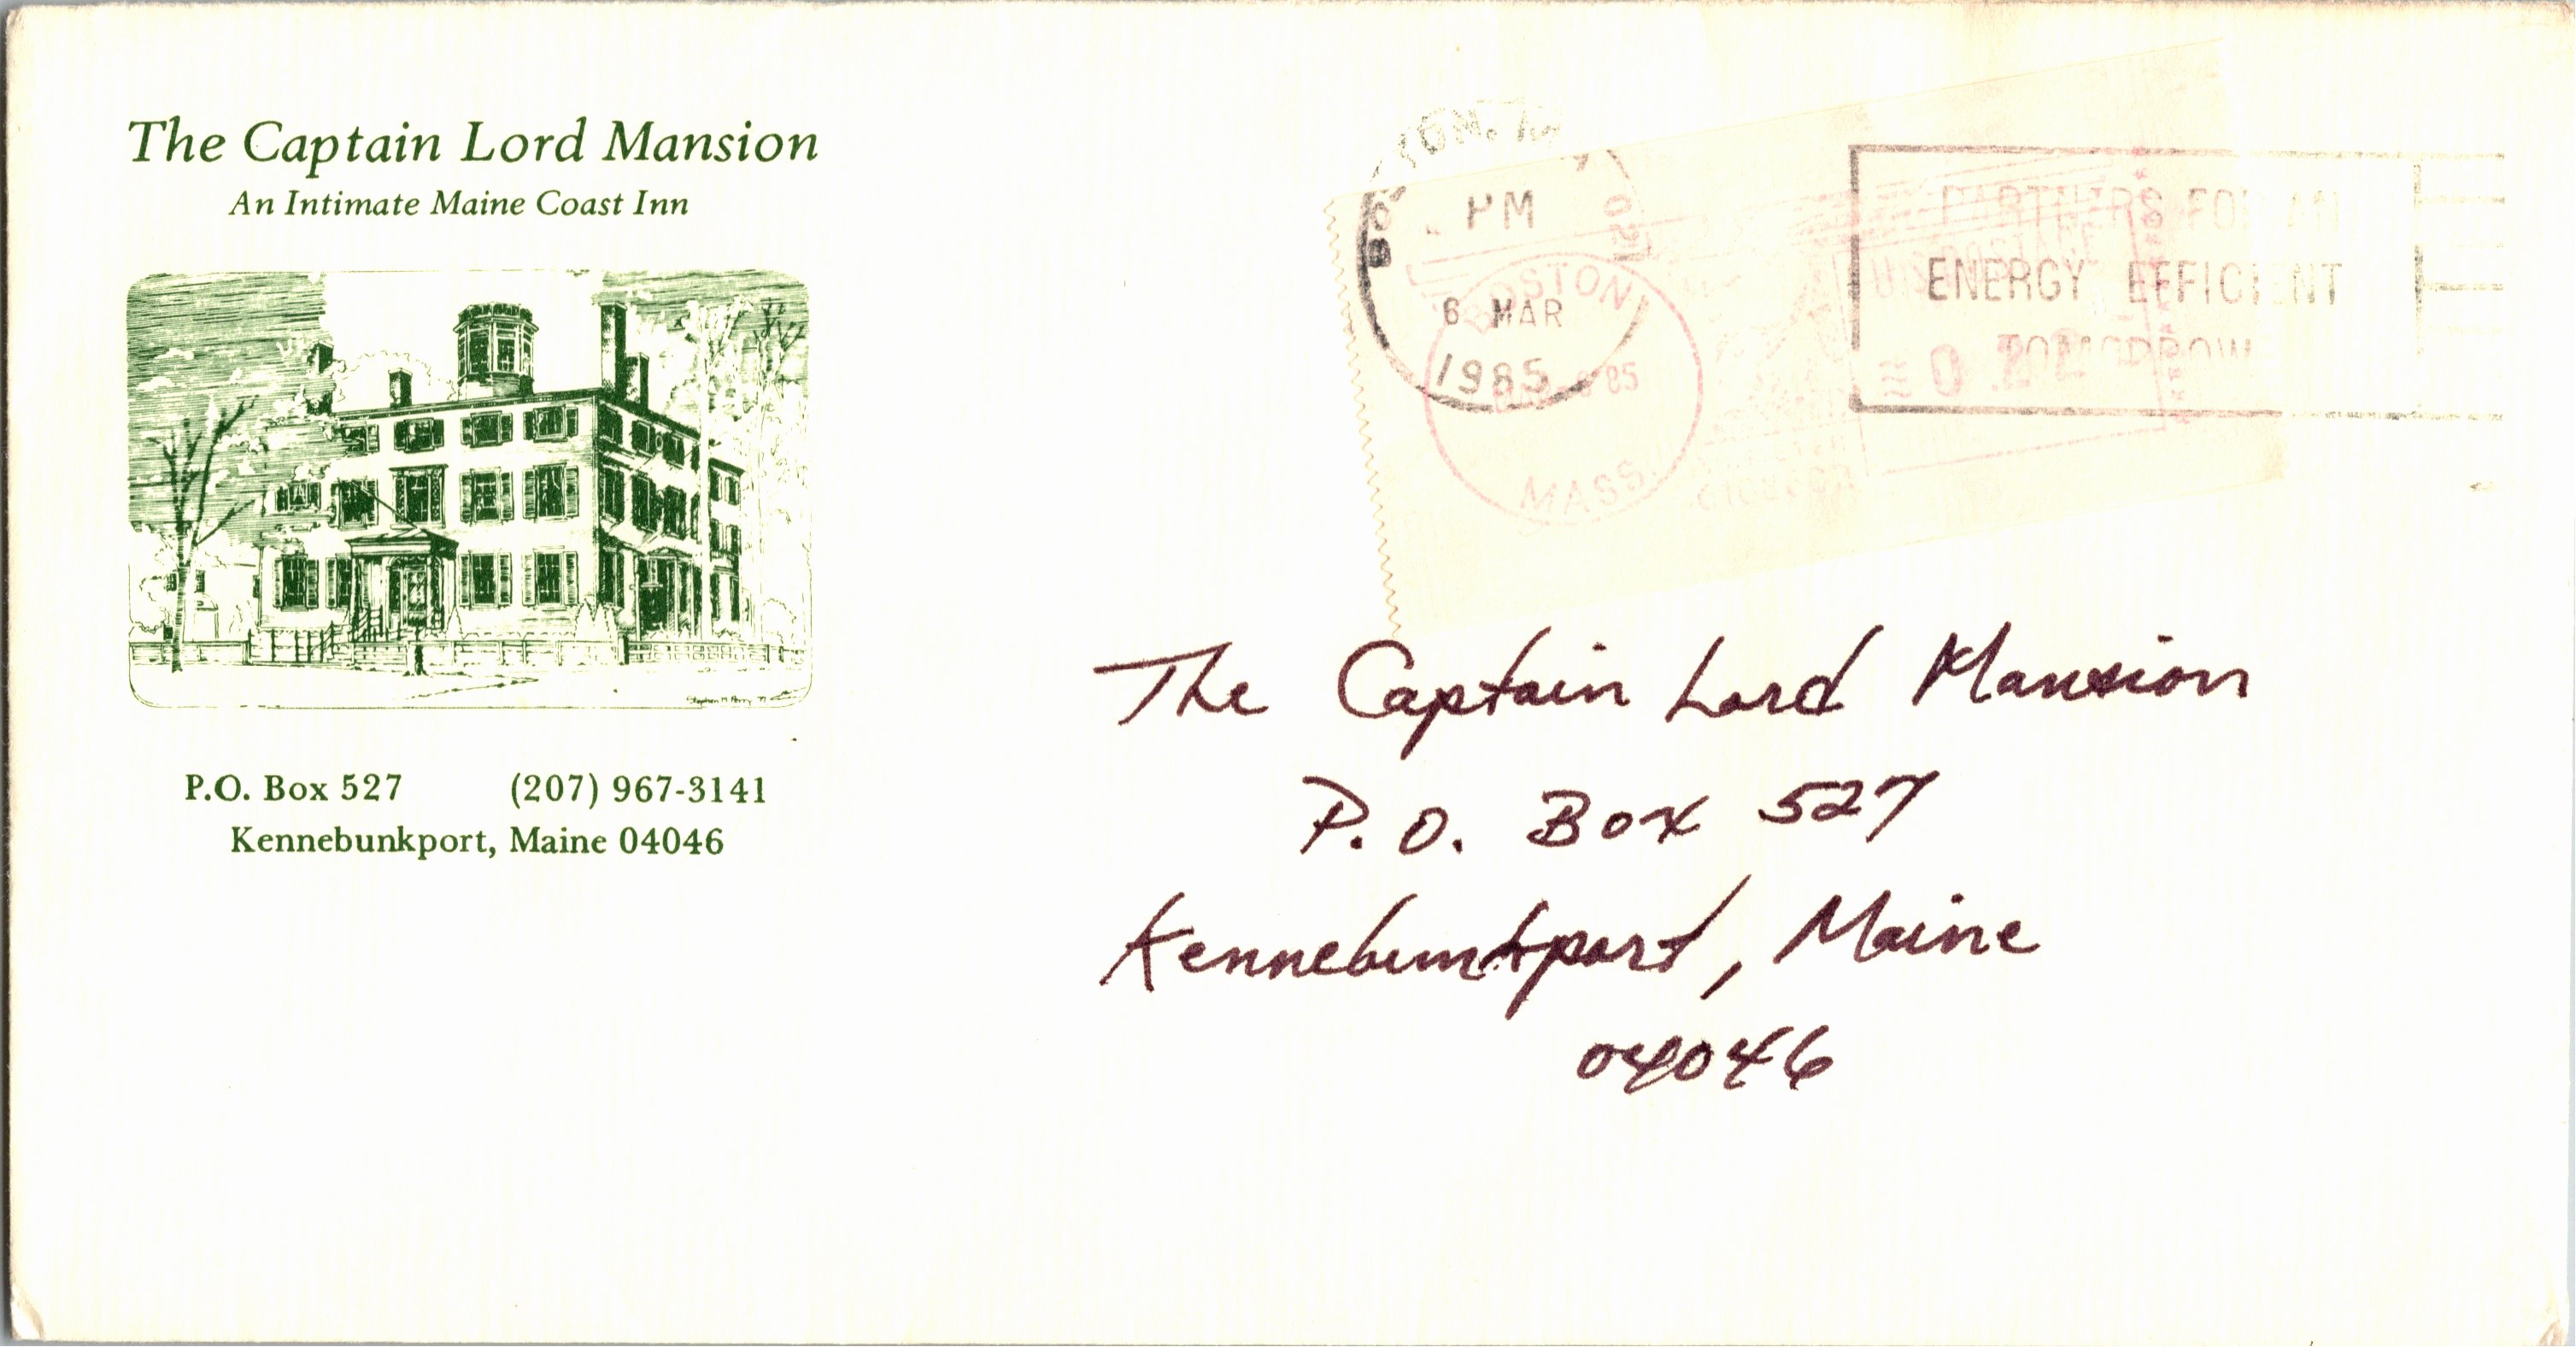 The Captain Lord Mansion
An Intimate Maine Coast Inn
P.O. Box 527 (207) 967-3141
Kennebunkport, Maine 04046
PM
6 MAR
1985
BOSTON
85
MASS.
PARTNERS FOR AN
ENERGY EFFICIENT
TOMORROW
U.S. POSTAGE
The Captain Lord Mansion
P.O. Box 527
Kennebunkport, Maine
04046